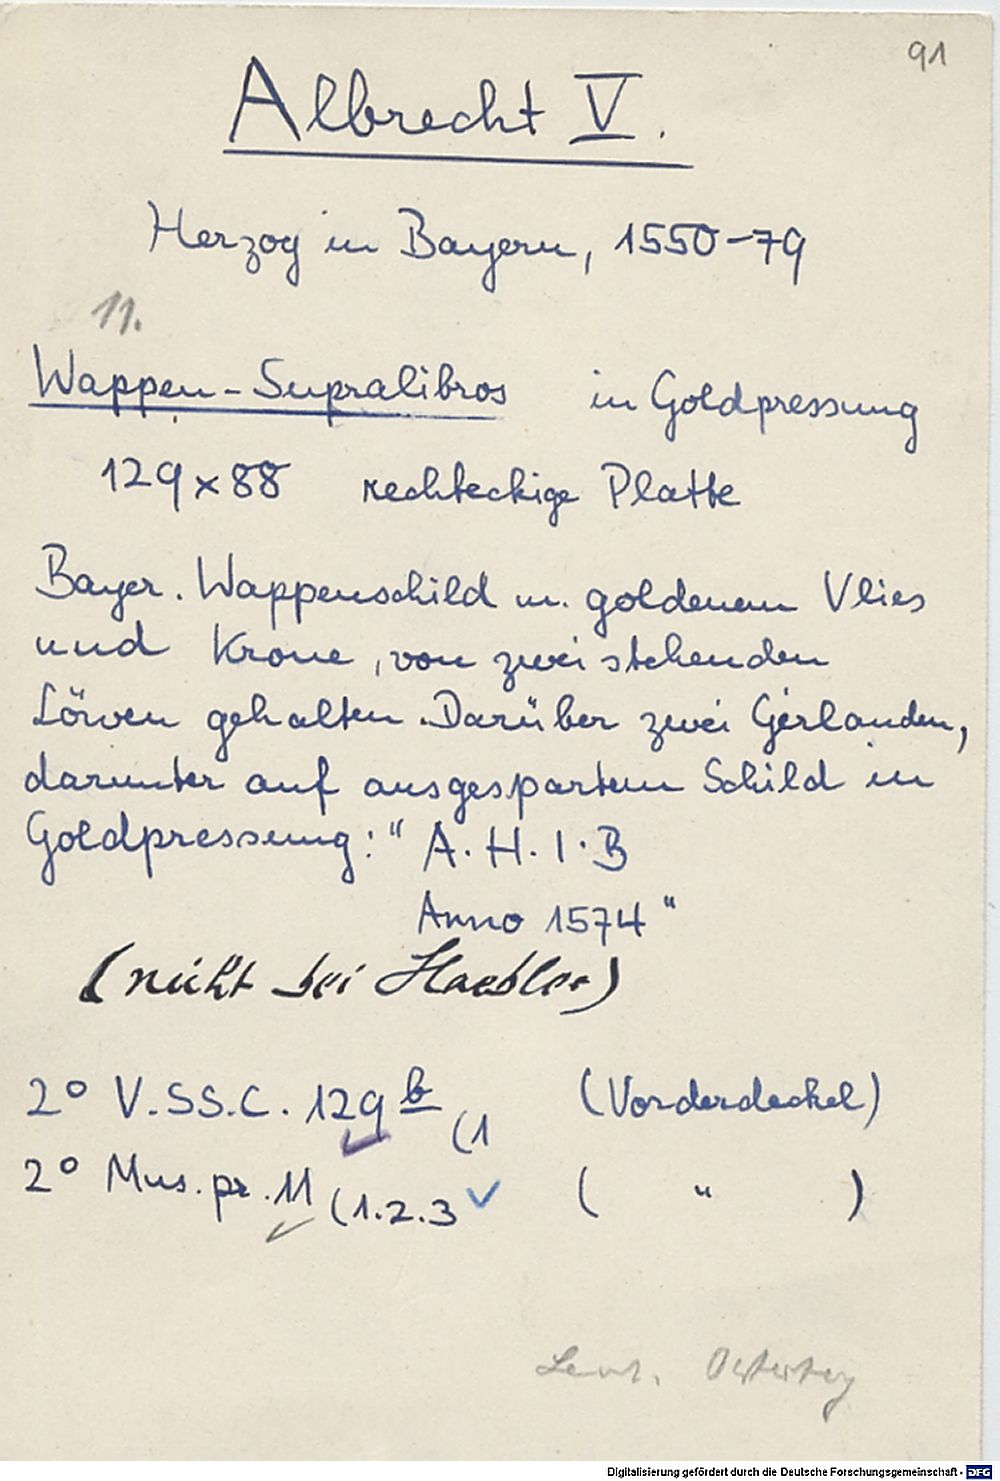 91
Albrecht V.
Herzog in Bayern, 1550-79
11.
Wappen-Supralibros in Goldpressung
129 x 88 rechteckige Platte
Bayer. Wappenschild m. goldenem Vlies
und Krone, von zwei stehenden
Löwen gehalten. Darüber zwei Gerlanden,
darunter auf ausgespartem Schild in
Goldpressung: " A. H. I. B
Anno 1574 "
(nicht bei Haebler)
2° V.SS.C. 129 b (1 (Vorderdeckel)
2° Mus. pr. 11 (1.2.3 ( " )
Digitalisierung gefördert durch die Deutsche Forschungsgemeinschaft - DFG